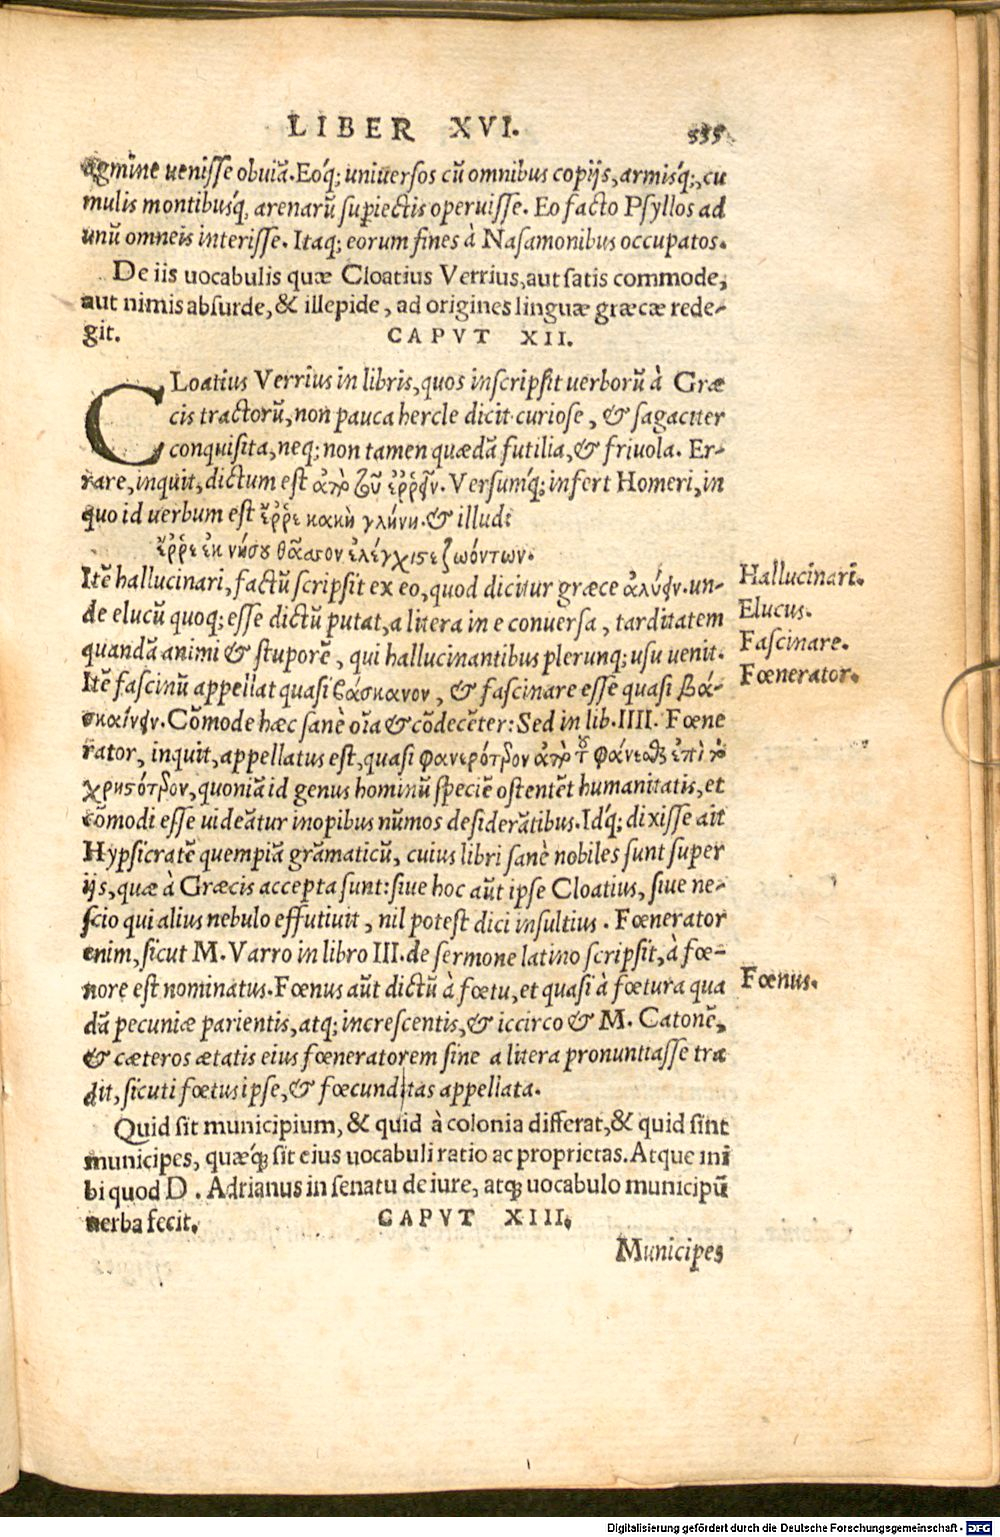 LIBER XVI. 535
agmine uenisse obuiā. Eóq́; uniuersos cū omnibus copijs, armisq́;, cu
mulis montibusq́, arenarū supiectis operuisse. Eo facto Psyllos ad
unū omneis interisse. Itaq; eorum fines à Nasamonibus occupatos.
De iis uocabulis quæ Cloatius Verrius, aut satis commode,
aut nimis absurde, & illepide, ad origines linguæ græcæ rede-
git. CAPVT XII.
CLoatius Verrius in libris, quos inscripsit uerborū à Græ
cis tractorū, non pauca hercle dicit curiose, & sagaciter
conquisita, neq; non tamen quædā futilia, & friuola. Er-
rare, inquit, dictum est ἀπὸ τοῦ ἐῤῥεῖν. Versumq́; infert Homeri, in
quo id uerbum est ἔῤῥε κακὴ γλήνη. & illud:
ἔῤῥε ἐκ νήσου θᾶσσον ἐλέγχιστε ζωόντων.
Itē hallucinari, factū scripsit ex eo, quod dicitur græce ἀλύειν. un-
de elucū quoq; esse dictū putat, a litera in e conuersa, tarditatem
quandā animi & stuporē, qui hallucinantibus plerunq; usu uenit.
Itē fascinū appellat quasi βάσκανον, & fascinare esse quasi βά-
σκαίνειν. Cōmode hæc sanè oīa & cōdecēter: Sed in lib. IIII. Fœne
rator, inquit, appellatus est, quasi φανερότρον ἀπὸ τοῦ φάνεσθαι ἐπὶ τὸ
χρηστότρον, quoniā id genus hominū speciē ostentēt humanitatis, et
cōmodi esse uideātur inopibus nūmos desiderātibus. Idq́; dixisse ait
Hypsicratē quempiā grāmaticū, cuius libri sanè nobiles sunt super
ijs, quæ à Græcis accepta sunt: siue hoc aūt ipse Cloatius, siue ne-
scio qui alius nebulo effutiuit, nil potest dici insultius. Fœnerator
enim, sicut M. Varro in libro III. de sermone latino scripsit, à fœ-
nore est nominatus. Fœnus aūt dictū à fœtu, et quasi à fœtura qua
dā pecuniæ parientis, atq; increscentis, & iccirco & M. Catonē,
& cæteros ætatis eius fœneratorem sine a litera pronuntiasse tra
dit, sicuti fœtus ipse, & fœcunditas appellata.
Quid sit municipium, & quid à colonia differat, & quid sint
municipes, quæq́; sit eius uocabuli ratio ac proprietas. Atque ini
bi quod D. Adrianus in senatu de iure, atq; uocabulo municipū
uerba fecit. CAPVT XIII.
Municipes
Hallucinari.
Elucus.
Fascinare.
Fœnerator.
Fœnus.
Digitalisierung gefördert durch die Deutsche Forschungsgemeinschaft - DFG